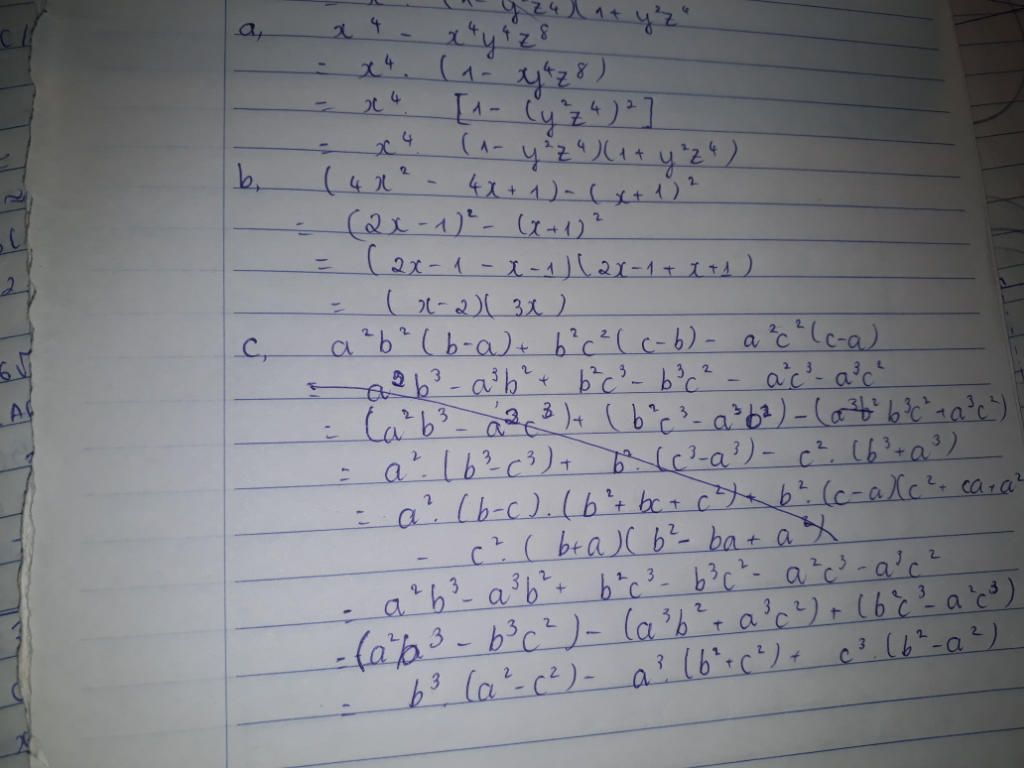 (1 - y²z4)(1 + y²z⁴
a, x⁴ - x⁴y⁴z⁸
= x⁴. (1 - xy⁴z8)
= x⁴. [1 - (y²z⁴)²]
= x⁴. (1 - y²z⁴)(1 + y²z⁴)
b, (4x² - 4x + 1) - (x + 1)²
= (2x - 1)² - (x + 1)²
= (2x - 1 - x - 1)(2x - 1 + x + 1)
= (x - 2)(3x)
c, a²b²(b - a) + b²c²(c - b) - a²c²(c - a)
= a²b³ - a³b² + b²c³ - b³c² - a²c³ - a³c²
= (a²b³ - a²c³) + (b²c³ - a³b²) - (a³b² b³c² + a³c²)
= a². (b³ - c³) + b². (c³ - a³) - c². (b³ + a³)
= a². (b - c). (b² + bc + c²) + b². (c - a)(c² + ca + a²
- c². (b + a)(b² - ba + a²)
= a²b³ - a³b² + b²c³ - b³c² - a²c³ - a³c²
= (a²b³ - b³c²) - (a³b² + a³c²) + (b²c³ - a²c³)
= b³. (a² - c²) - a³. (b² + c²) + c³. (b² - a²)